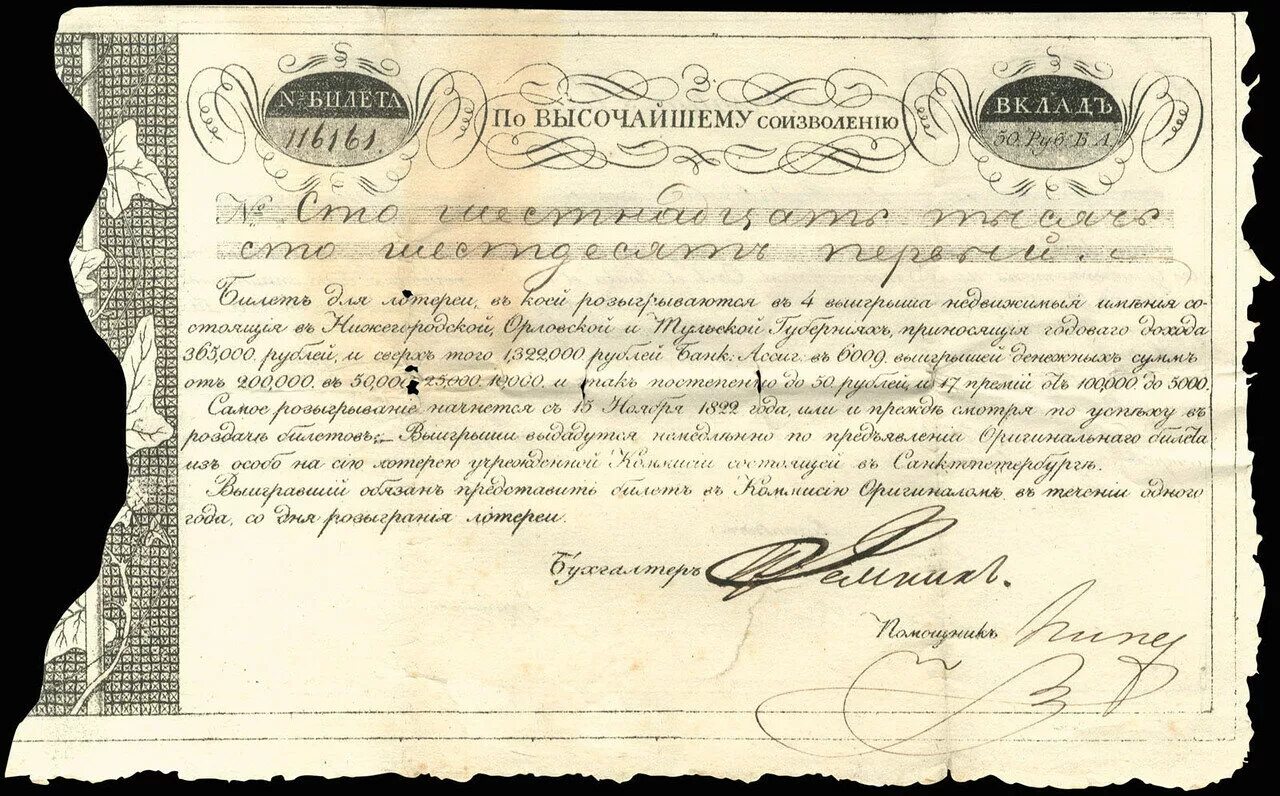 № БИЛЕТА
116161.
По ВЫСОЧАЙШЕМУ СОИЗВОЛЕНІЮ
ВКЛАДЪ
50. Руб. Б. А.
№ Сто шестнадцать тысячь
сто шестдесятъ первый.
Билетъ для лотереи, въ коей розыгрываются въ 4 выигрыша недвижимыя имѣнія со-
стоящія въ Нижегородской, Орловской и Тульской Губерніяхъ, приносящія годоваго дохода
365,000 рублей, и сверхъ того 1,322,000 рублей Банк: Ассиг: въ 6009, выигрышей денежныхъ суммъ
отъ 200,000, въ 50,000 25,000, 10,000, и такъ постепенно до 50 рублей, и 17 премій отъ 100,000, до 5000.
Самое розыгрываніе начнется съ 15 Ноября 1822 года, или и преждѣ смотря по успѣху въ
роздачѣ билетовъ:— Выигрыши выдадутся немедлѣнно по предъявленіи Оригинальнаго билѣта
изъ особо на сію лотерею учрежденной Коммисіи состоящей въ Санктпетербургѣ.
Выигравшій обязанъ представить билетъ въ Коммисію Оригиналомъ, въ теченіи одного
года, со дня розыгранія лотереи.
Бухгалтеръ
Помощникъ